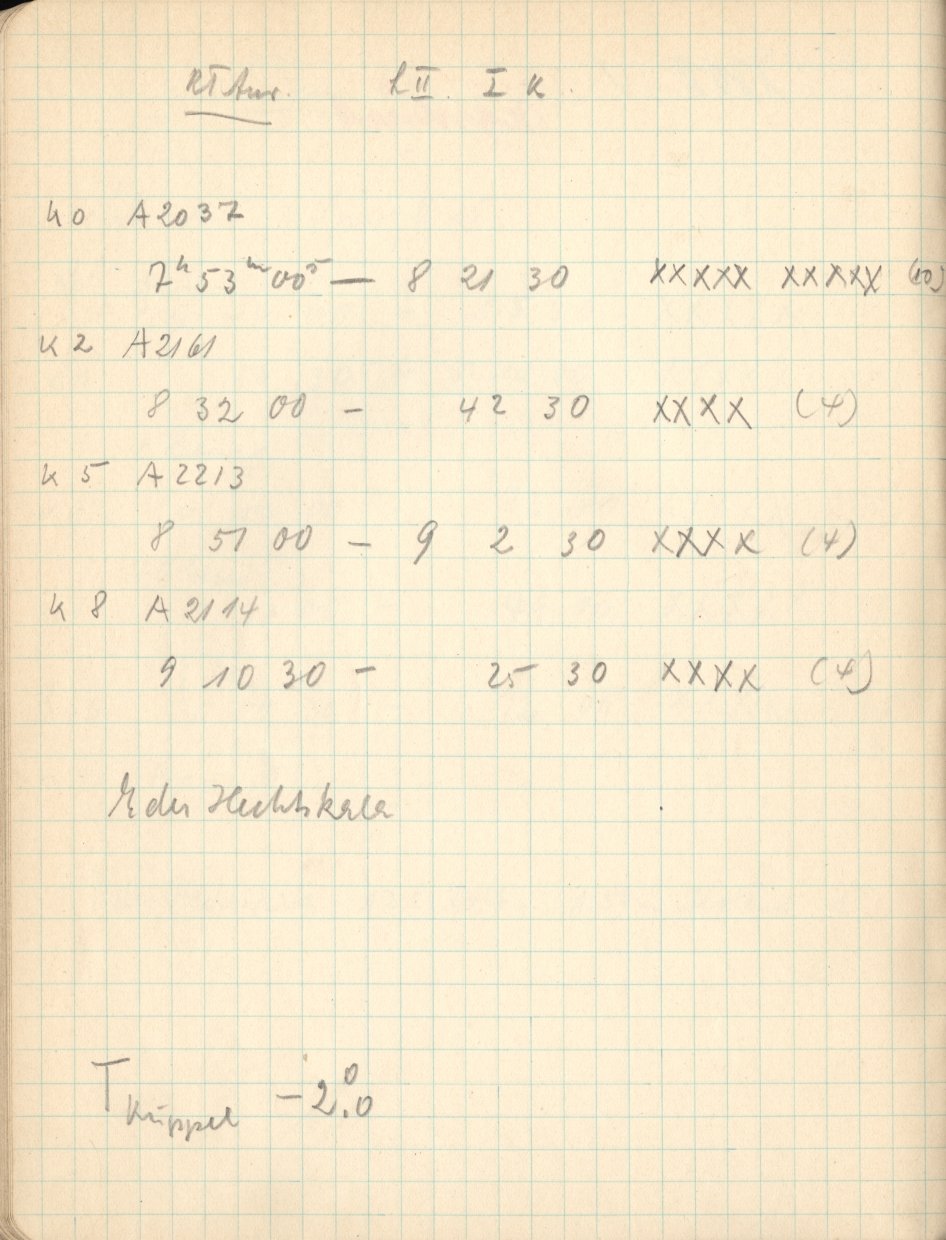 RT Aur. L II. I K
K 0 A 2037
7h 53m 00s — 8 21 30 xxxxx xxxxx (10)
K 2 A 2161
8 32 00 — 42 30 xxxx (4)
K 5 A 2213
8 51 00 — 9 2 30 xxxx (4)
K 8 A 2114
9 10 30 — 25 30 xxxx (4)
der
T Kuppel -2°.0